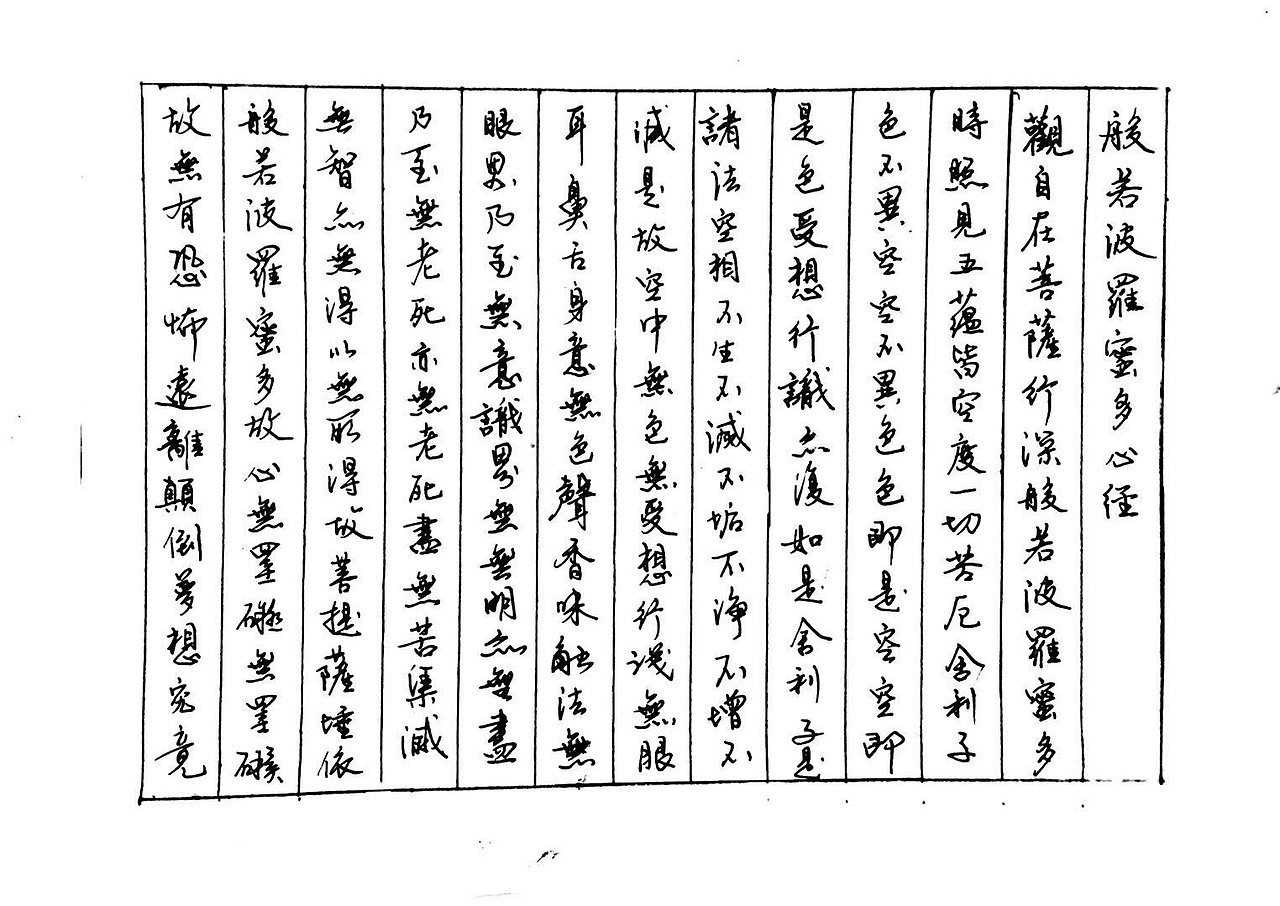 般若波羅蜜多心経
觀自在菩薩行深般若波羅蜜多
時照見五蘊皆空度一切苦厄舍利子
色不異空空不異色色即是空空即
是色受想行識亦復如是舍利子是
諸法空相不生不滅不垢不淨不增不
減是故空中無色無受想行識無眼
耳鼻舌身意無色聲香味觸法無
眼界乃至無意識界無無明亦無盡
乃至無老死亦無老死盡無苦集滅
無智亦無得以無所得故菩提薩埵依
般若波羅蜜多故心無罣礙無罣礙
故無有恐怖遠離顛倒夢想究竟